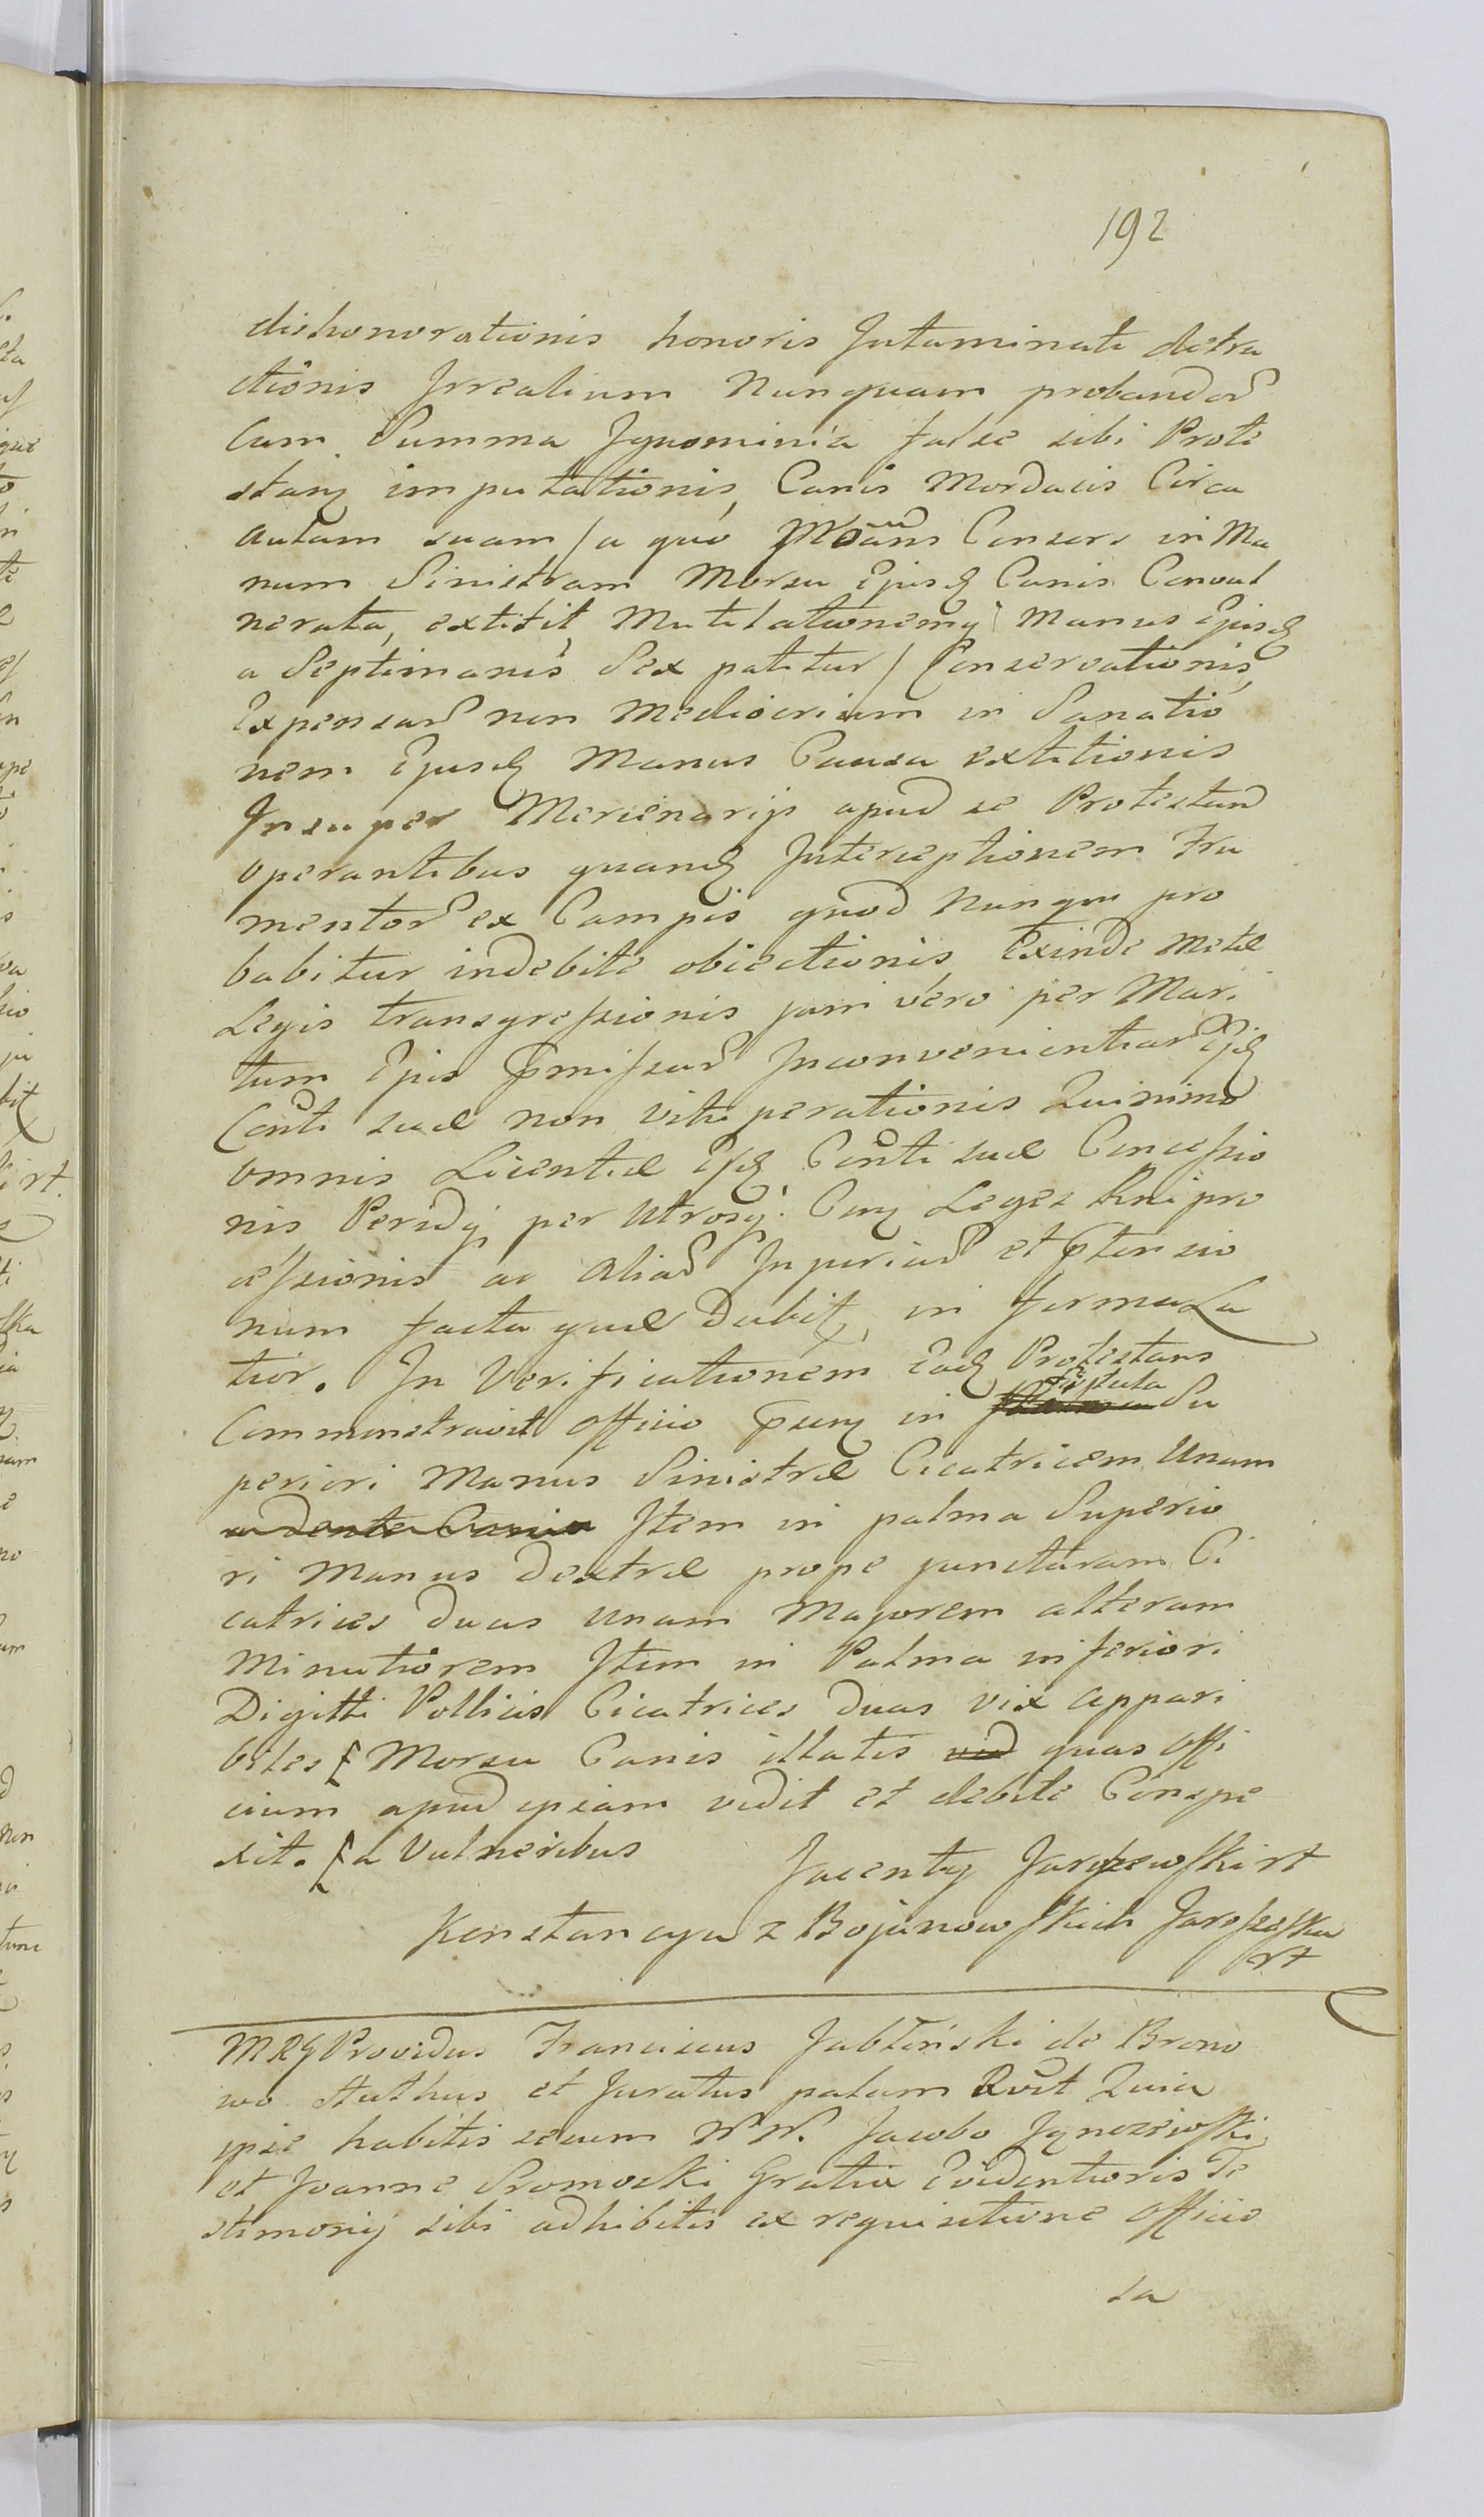 192
dishonorationis honoris Intaminati detra
ctionis Irrealium Nunquam probandor
Cum Summa Ignominia false sibi Prote
stanq imputationis, Canis Mordacis Circa
aulam suam / a quo Consors in Ma
num Sinistram Morsu Ejusd Canis Convul
nerata, extitit, Mutilationemq Manus Ejusd
a Septimanis Sex patitur / Conservationis,
Expensar non Mediocrium in Sanatio
nem Ejusd Manus Causa extitionis
Insuper Mercenarijs apud se Protestand
operantibus quand Interceptionem Fru
mentor ex Campis quod Nunqu pro
babitur indebite obiectionis, Exinde Metae
Legis transgressionis jam vero per Mari
tum Ejus Pmissar Inconvenientiar Ejd
Conti suae non Vituperationis Quinimo
omnis Licentiae Ejd Conti suae Concessio
nis Peridq per Utrosq Conq Leges Rni pro
cessionis ac aliar Injuriar et Ptensio
num facta quae Dabit, in forma La
tior. In Verificationem Ead Protestans
Commonstravit officio Psenq in Su
periori Manus Sinistrae Cicatricem Unam
a Dente Canis Item in palma Superio
ri Manus Dextrae prope juncturam Ci
catrices duas Unam Majorem alteram
Minutiorem Item in Palma inferiori
Digitti Pollicis Cicatrices Duas vix appari
biles Morsu Canis illatis quas offi
cium apud ipsam vidit et debite Conspe
xit. a Vulneribus
Jacenty Jaroszewski rt
Konstancya z Bojanowskich Jaroszeska
rt
MRG Providus Franciscus Jabłoński de Brono
wo et Juratus palam Rvit Quia
ipse habitis secum NN. Jacobo
et Joanne Sromocki Gratia Evidentioris Te
stimonij sibi adhibitis ex requisitione officio
sa